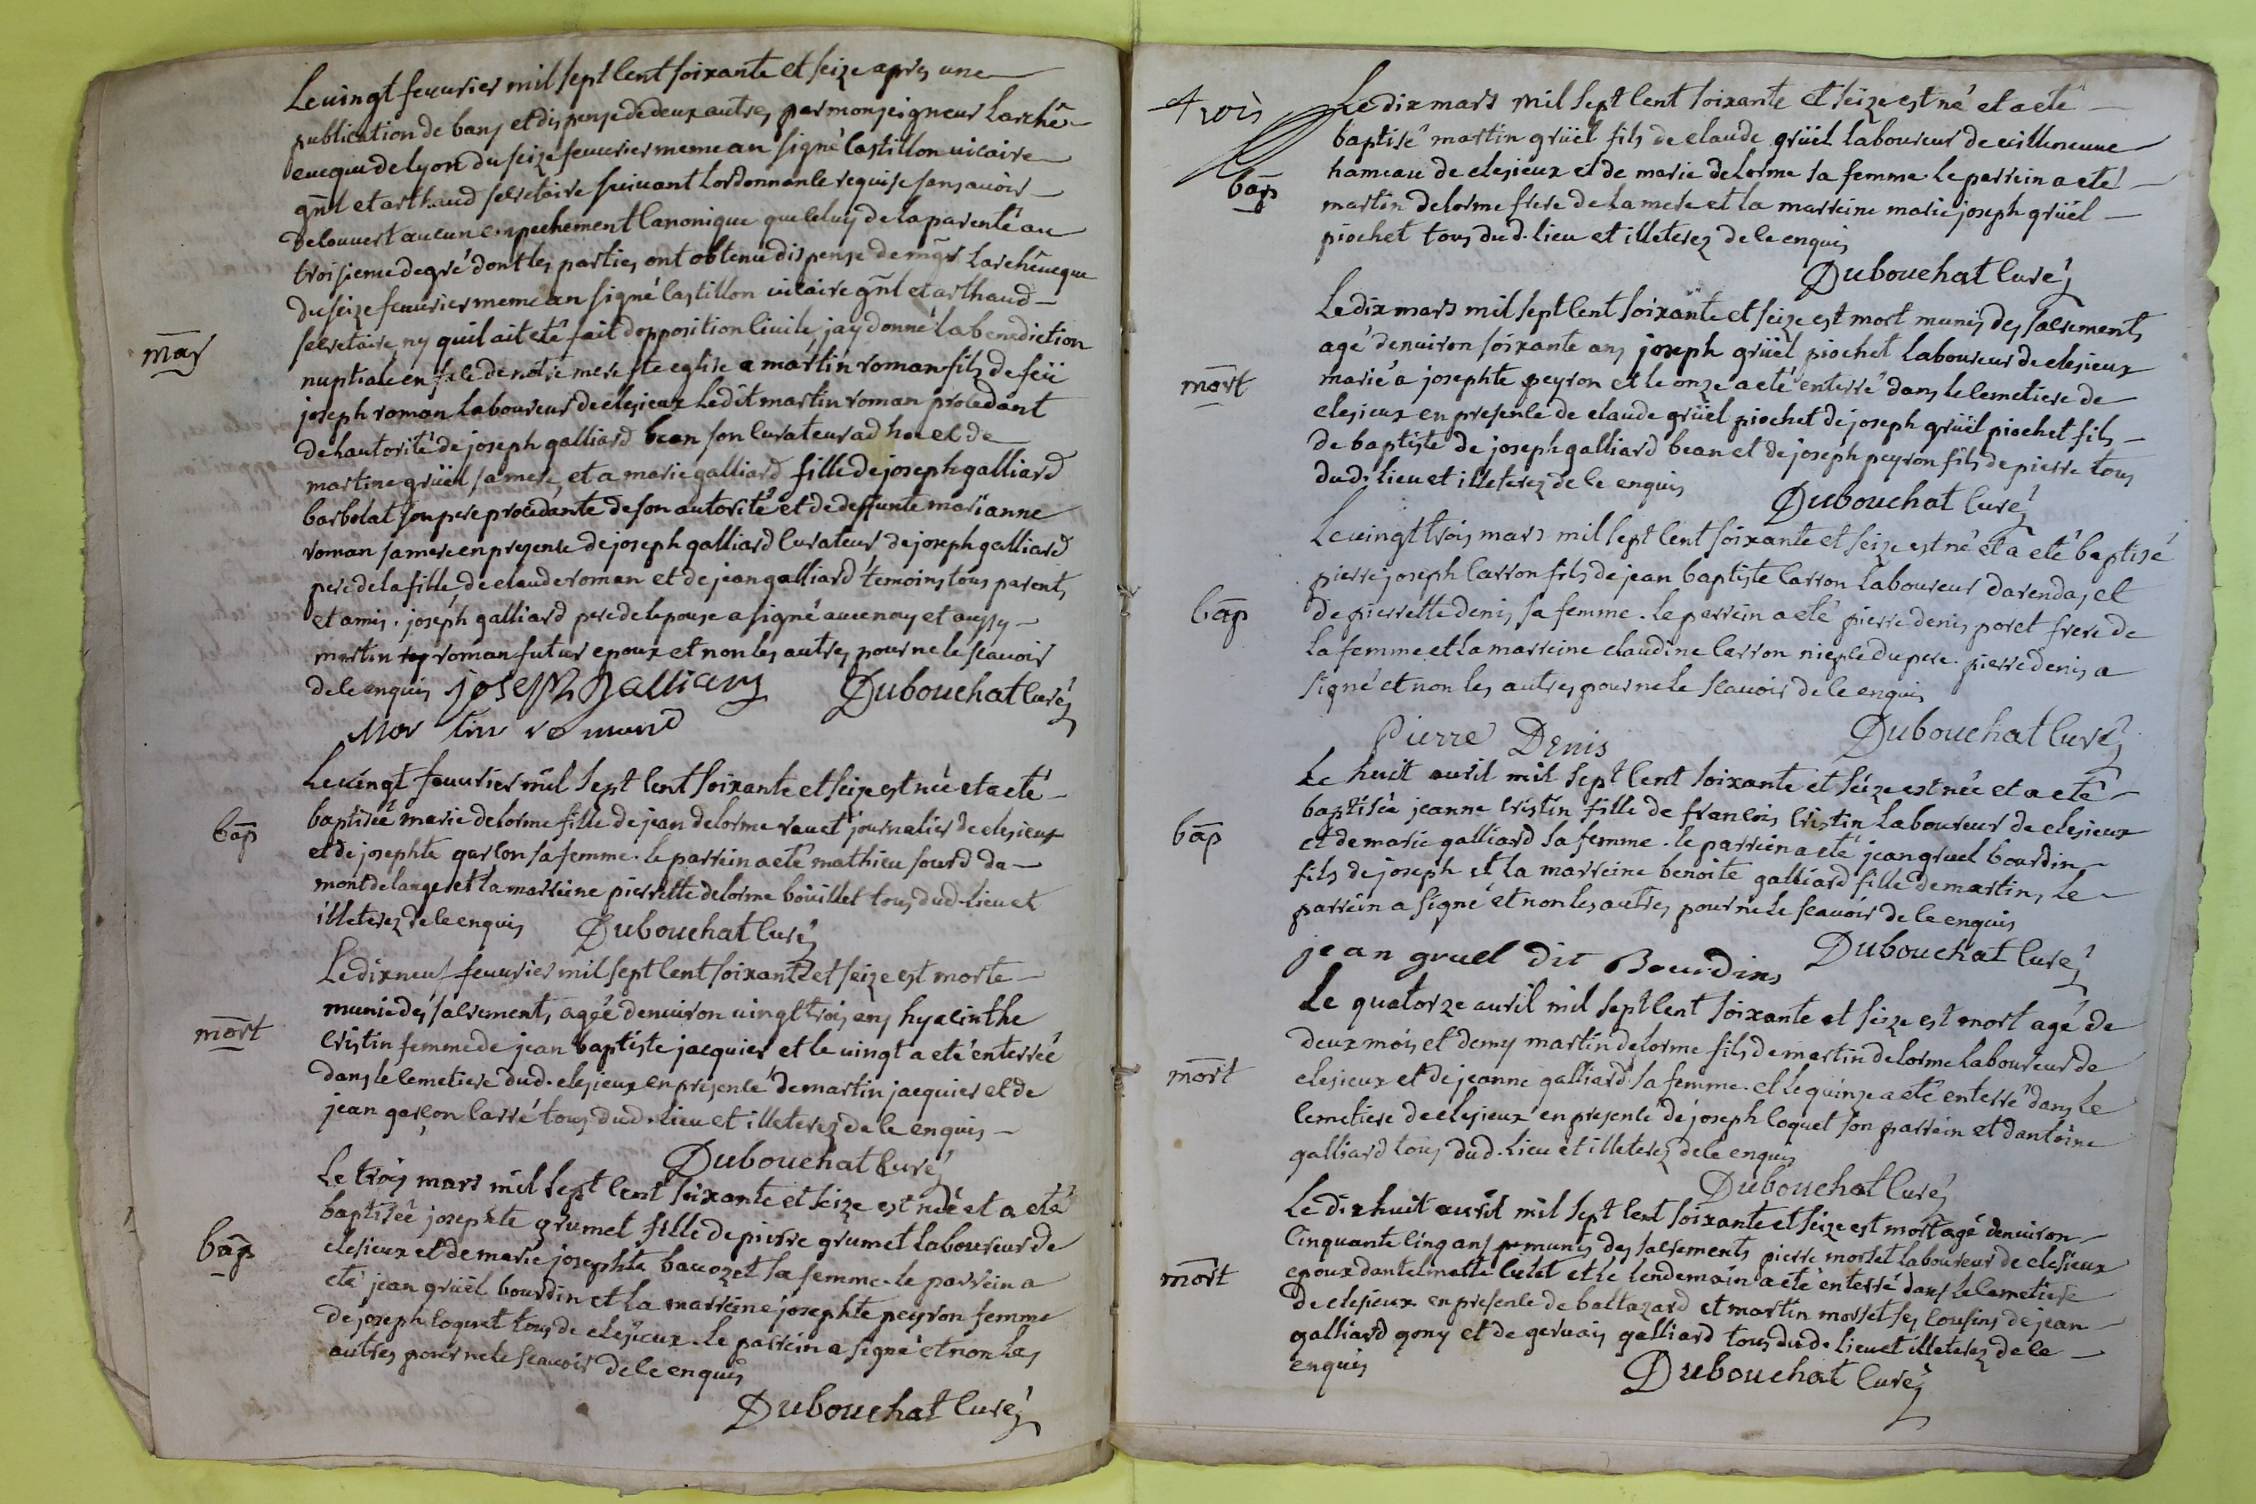 Le vingt feuvrier mil sept cent soixante et seize apres une
publication de bans et dispense de deux autres par monseigneur larche
eveque de lyon du seize feuvrier meme an signé Castillon vicaire
gñl et arthaud secretaire suivant lordonnance requise sans avoir
decouvert aucun empechement canonique que celuy de la parenté au
troisieme degré dont les parties ont obtenu dispense de mgr larcheveque
du seize feuvrier meme an signé Castillon vicaire gñl et arthaud
secretaire, ny quil ait eté fait dopposition civile, jay donné la benediction
mar
nuptiale en face de notre mere ste eglise a martin roman fils de feü
joseph roman laboureur de clesieux ledit martin roman procedant
de lautorité de joseph galliard bean son curateur ad hoc et de
martine grüel sa mere, et a marie galliard fille de joseph galliard
barbolat son pere procedante de son autorité et de deffunte marianne
roman sa mere en presence de joseph galliard curateur de joseph galliard
pere de la fille, de claude roman et de jean galliard temoins tous parents
et amis. joseph galliard pere de lepouse a signé avec nous et aussy
martin roman futur epoux et non les autres pour ne le scavoir
de ce enquis joseph galliard Dubouchat Curé
Mar tin romand
Le vingt feuvrier mil sept cent soixante et seize est née et a eté
bap
baptisée marie delorme fille de jean delorme ravet journalier de clesieux
et de josephte garcon sa femme. le parrein a eté mathieu sourd da
mont de lange et la marreine pierrette delorme boüillet tous dud. lieu et
illeterez de ce enquis Dubouchat Curé
Le dix neuf feuvrier mil sept cent soixante et seize est morte
mort
munie des sacrements agée denviron vingt trois ans hyacinthe
Cristin femme de jean baptiste jacquier et le vingt a eté enterrée
dans le cemetiere dud. clesieux en presence de martin jacquier et de
jean garçon Carré tous dud. lieu et illeterez de ce enquis
Dubouchat Curé
Le trois mars mil sept cent soixante et seize est née et a eté
bap
baptisée josephte grumet fille de pierre grumet laboureur de
clesieux et de marie josephte bavozet sa femme. le parrein a
eté jean grüel bourdin et la marreine josephte peyron femme
de joseph Coquet tous de clesieux. le parrein a signé et non les
autres pour ne le scavoir de ce enquis
Dubouchat Curé
trois
Le dix mars mil sept cent soixante et seize est né et a eté
baptisé martin grüel fils de claude grüel laboureur de villeneuve
bap
hameau de clesieux et de marie delorme sa femme. le parrein a eté
martin delorme frere de la mere et la marreine marie joseph grüel
piochet tous dud. lieu et illeterez de ce enquis
Dubouchat Curé
Le dix mars mil sept cent soixante et seize est mort munis des sacrements
agé denviron soixante ans joseph grüel piochet laboureur de clesieux
mort
marié a josephte peyron et le onze a eté enterré dans le cemetiere de
clesieux en presence de claude grüel piochet de joseph grüel piochet fils
de baptiste de joseph galliard bean et de joseph peyron fils de pierre tous
dud. lieu et illeterez de ce enquis Dubouchat Curé
Le vingt trois mars mil sept cent soixante et seize est né et a eté baptisé
pierre joseph Carron fils de jean baptiste Carron laboureur darendas et
bap
de pierrette denis sa femme. le parrein a eté pierre denis poret frere de
la femme et la marreine claudine Carron niepce du pere. pierre denis a
signé et non les autres pour ne le scavoir de ce enquis
Pierre Denis Dubouchat Curé
Le huit avril mil sept cent soixante et seize est née et a eté
bap
baptisée jeanne Cristin fille de francois Cristin laboureur de clesieux
et de marie galliard sa femme. le parrein a eté jean gruel bourdin
fils de joseph et la marreine benoite galliard fille de martin, le
parrein a signé et non les autres pour ne le scavoir de ce enquis
jean gruel dit Bourdin Dubouchat Curé
Le quatorze avril mil sept cent soixante et seize est mort agé de
deux mois et demy martin delorme fils de martin delorme laboureur de
mort
clesieux et de jeanne galliard sa femme. et le quinze a eté enterré dans le
cemetiere de clesieux en presence de joseph Coquet son parrein et dantoine
galliard tous dud. lieu et illeterez de ce enquis
Dubouchat Curé
Le dix huit avril mil sept cent soixante et seize est mort agé denviron
cinquante cinq ans munis des sacrements pierre morset laboureur de clesieux
mort
epoux dantelmette et le lendemain a eté enterré dans le cemetiere
de clesieux en presence de baltazard et martin morset ses cousins de jean
galliard gony et de gervais galliard tous dud. lieu et illeterez de ce
enquis Dubouchat Curé